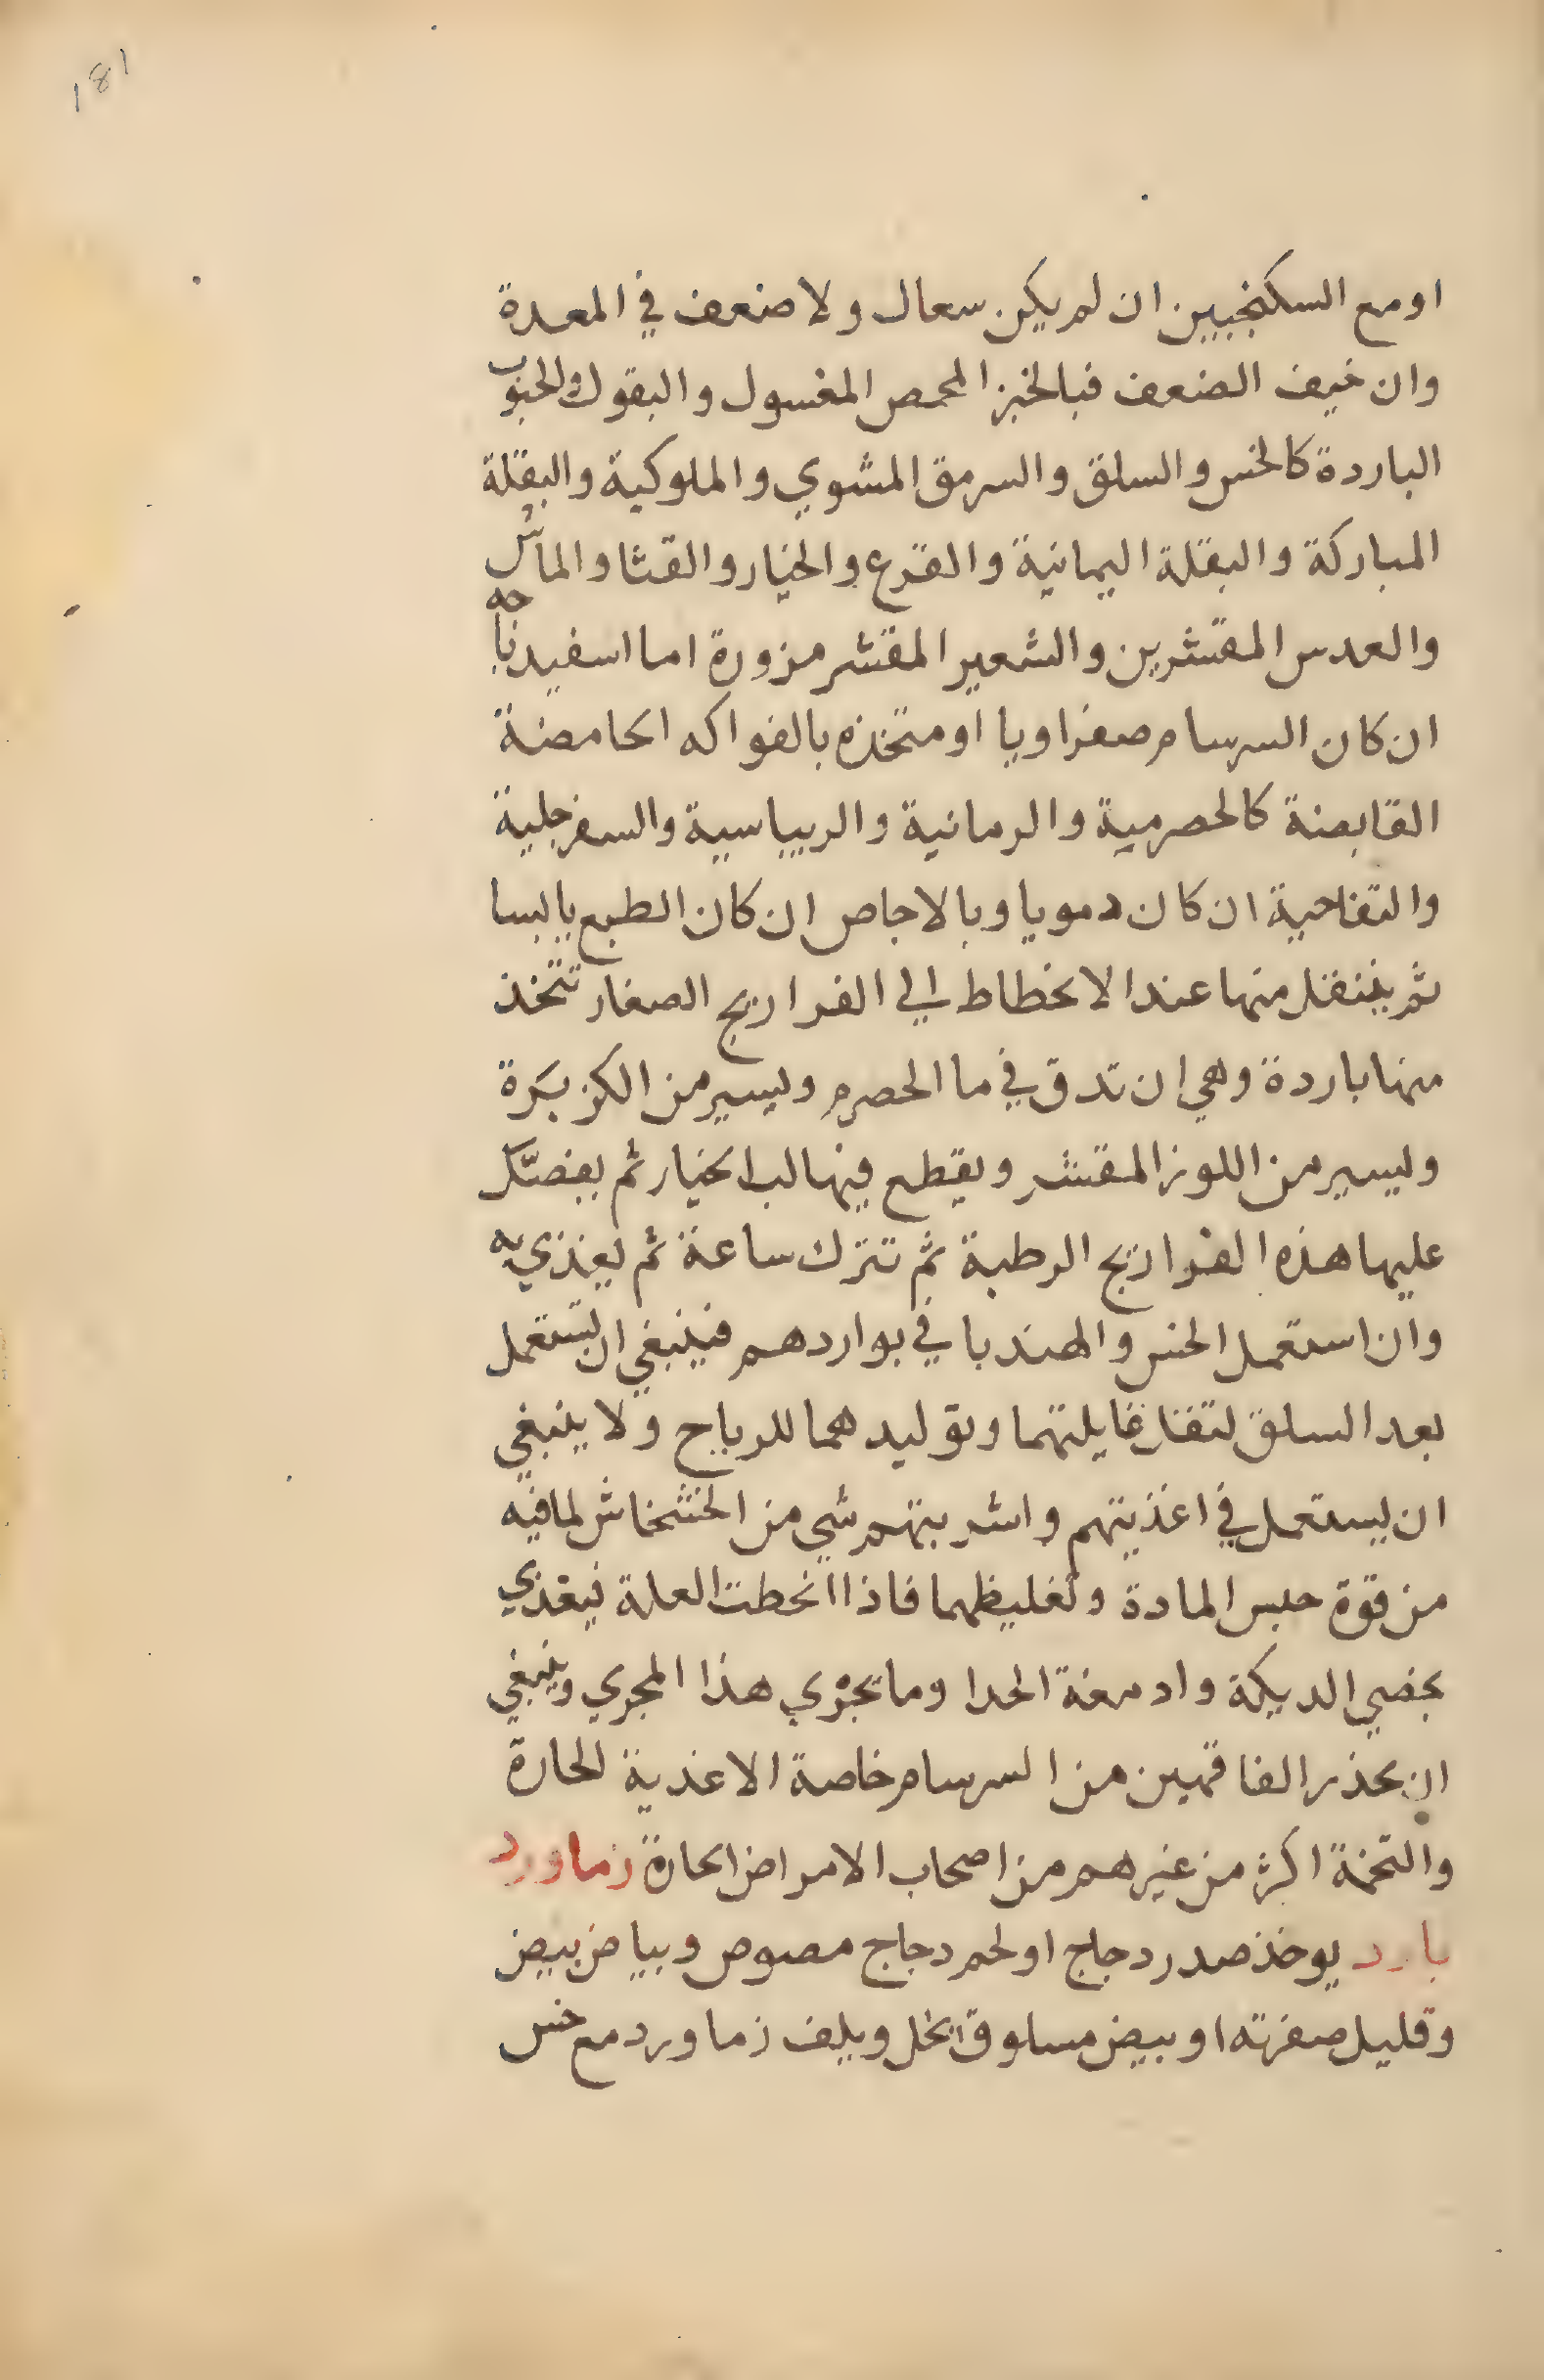 181
او مع السكنجبين ان لم يكن سعال ولا ضعف في المعدة
وان خيف الضعف فبالخبز المحمص المغسول والبقول والحبوب
الباردة كالخس والسلق والسرمق المشوي والملوكية والبقلة
المباركة والبقلة اليمانية والقرع والخيار والقثا والماش
والعدس المقشرين والشعير المقشر مزورة اما اسفيدناجه
ان كان السرسام صفراويا او متخذه بالفواكه الحامضة
القابضة كالحصرمية والرمانية والريباسية والسفرجلية
والتفاحية ان كان دمويا وبالاجاص ان كان الطبع يابسا
ثم ينتقل منها عند الانحطاط الي الفراريج الصغار تتخذ
منها باردة وهي ان تدق في ما الحصرم ويسير من الكزبرة
ويسير من اللوز المقشر ويقطع فيها لب الخيار ثم يفصل
عليها هذه الفراريج الرطبة ثم تترك ساعة ثم يغذي به
وان استعمل الخس والهندبا في بواردهم فينبغي ان يستعمل
بعد السلق لتقل غايلتهما وتوليدهما للرياح ولا ينبغي
ان يستعمل في اغذيتهم واشربتهم شي من الخشخاش لما فيه
من قوة حبس المادة وتغليظهما فاذا انحطت العلة فيغذي
بخصي الديكة وادمغة الجدا وما تجري هذا المجري وينبغي
ان يحذر الناقهين من السرسام خاصة الاغذية الحارة
والتخمة اكثر من غيرهم من اصحاب الامراض الحارة زماورد
بارد يوخذ صدر دجاج او لحم دجاج مصوص وبياض بيض
وقليل صفرته او بيض مسلوق بخل ويلف زماورد مع خس